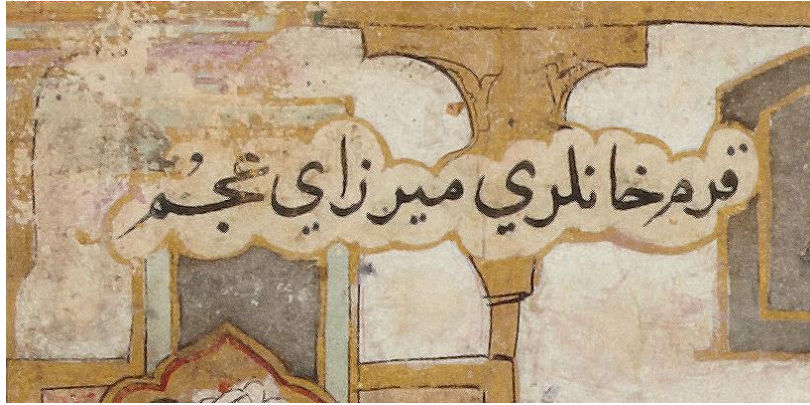 قرم خانلري ميرزاي عجم